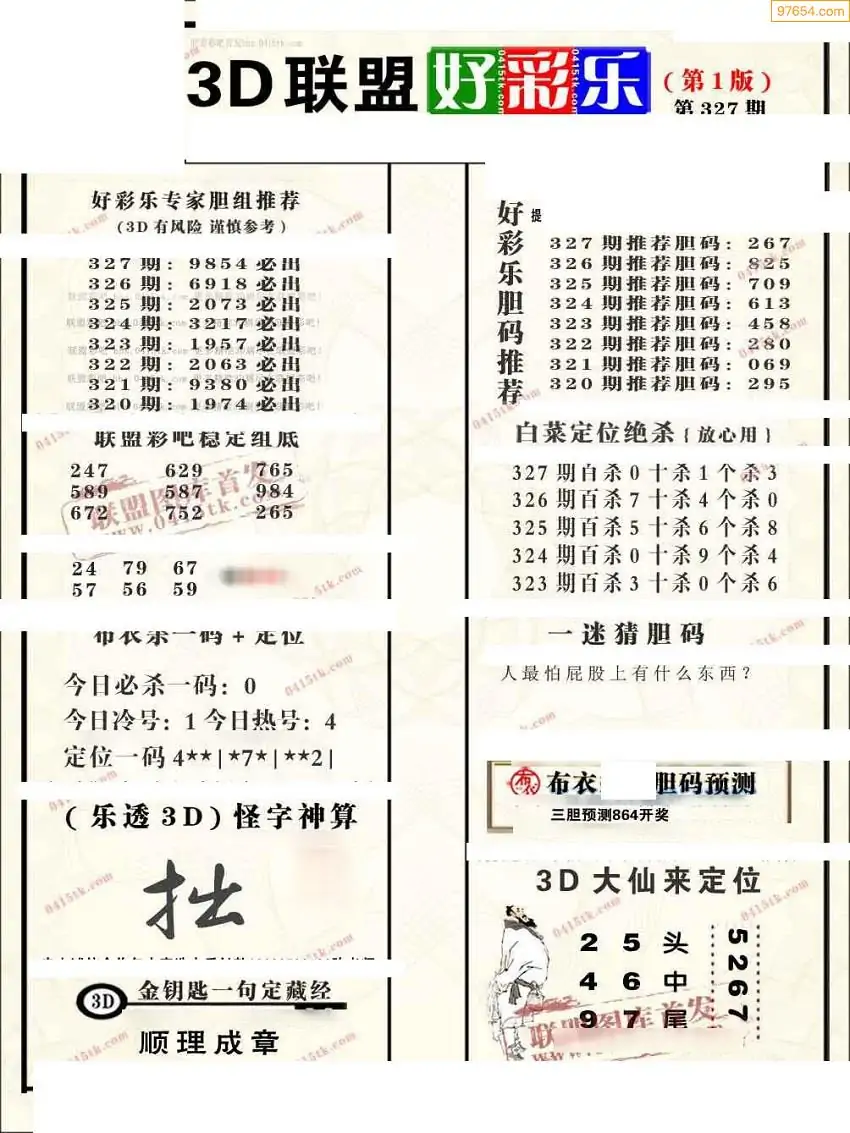 97654.com
3D联盟好彩乐(第1版)
第327期
好彩乐专家胆组推荐
(3D有风险 谨慎参考)
327期:9854必出
326期:6918必出
325期:2073必出
324期:3217必出
323期:1957必出
322期:2063必出
321期:9380必出
320期:1974必出
联盟彩吧稳定组底
247 629 765
589 587 984
672 752 265
联盟图库首发
www.0415tk.com
24 79 67
57 56 59
布衣杀一码+定位
今日必杀一码:0
今日冷号:1今日热号:4
定位一码4**|*7*|**2|
(乐透3D)怪字神算
拙
3D 金钥匙一句定藏经
顺理成章
好彩乐胆码推荐
提
327期推荐胆码:267
326期推荐胆码:825
325期推荐胆码:709
324期推荐胆码:613
323期推荐胆码:458
322期推荐胆码:280
321期推荐胆码:069
320期推荐胆码:295
白菜定位绝杀{放心用}
327期百杀0十杀1个杀3
326期百杀7十杀4个杀0
325期百杀5十杀6个杀8
324期百杀0十杀9个杀4
323期百杀3十杀0个杀6
一迷猜胆码
人最怕屁股上有什么东西?
布衣 胆码预测
三胆预测864开奖
3D大仙来定位
2 5 头
4 6 中
9 7 尾
5267
联盟图库首发